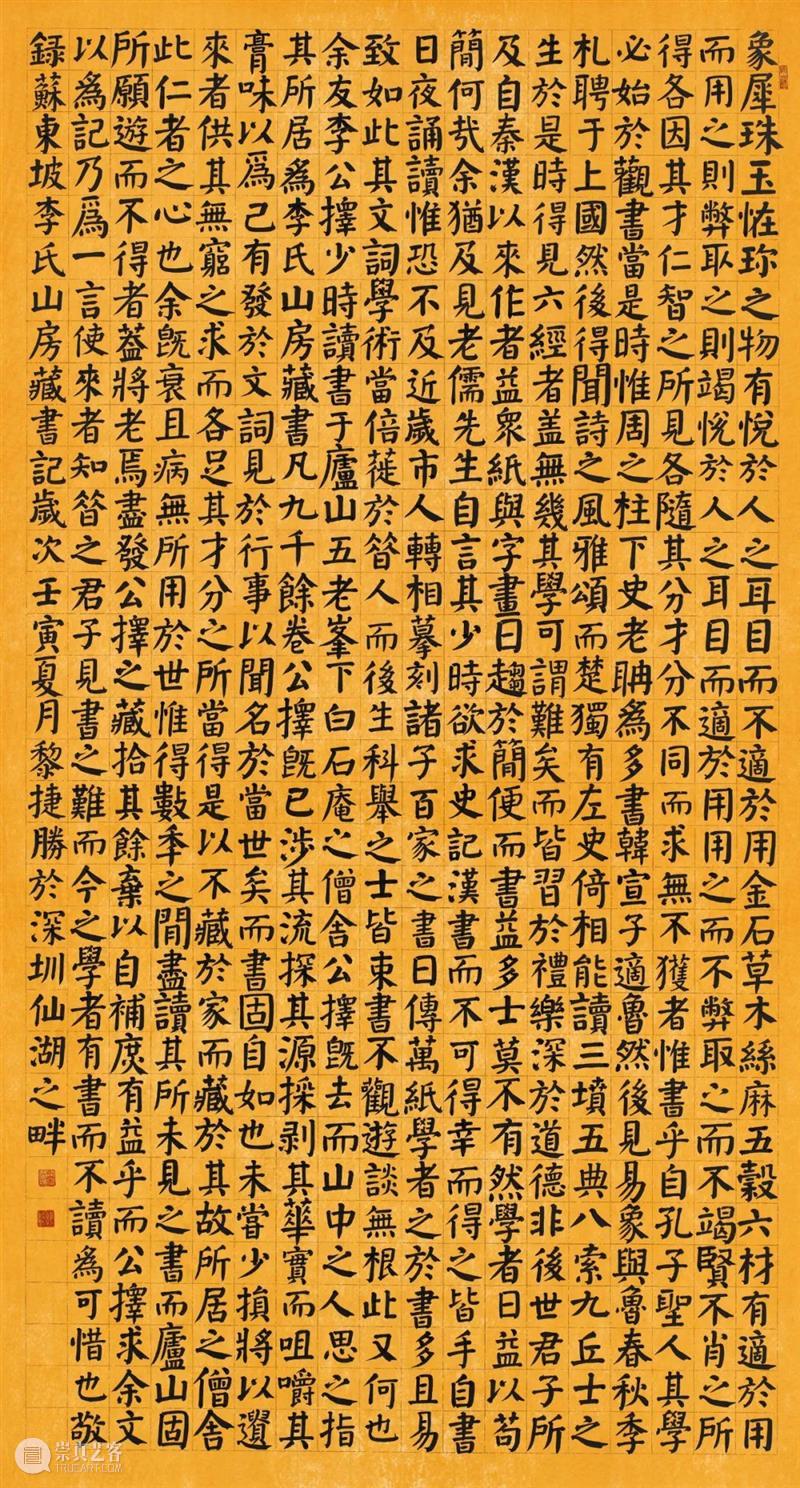 象犀珠玉恠珍之物有悅於人之耳目而不適於用金石草木絲麻五穀六材有適於用
而用之則弊取之則竭悅於人之耳目而適於用用之而不弊取之而不竭賢不肖之所
得各因其才仁智之所見各隨其分才分不同而求無不獲者惟書乎自孔子聖人其學
必始於觀書當是時惟周之柱下史老聃為多書韓宣子適魯然後見易象與魯春秋季
札聘于上國然後得聞詩之風雅頌而楚獨有左史倚相能讀三墳五典八索九丘士之
生於是時得見六經者盖無幾其學可謂難矣而皆習於禮樂深於道德非後世君子所
及自秦漢以來作者益衆紙與字畫日趨於簡便而書益多士莫不有然學者日益以苟
簡何哉余猶及見老儒先生自言其少時欲求史記漢書而不可得幸而得之皆手自書
日夜誦讀惟恐不及近歲市人轉相摹刻諸子百家之書日傳萬紙學者之於書多且易
致如此其文詞學術當倍蓰於昝人而後生科舉之士皆束書不觀遊談無根此又何也
余友李公擇少時讀書于廬山五老峯下白石庵之僧舍公擇旣去而山中之人思之指
其所居為李氏山房藏書凡九千餘卷公擇旣已涉其流探其源採剥其華實而咀嚼其
膏味以爲己有發於文詞見於行事以聞名於當世矣而書固自如也未甞少損將以遺
來者供其無窮之求而各足其才分之所當得是以不藏於家而藏於其故所居之僧舍
此仁者之心也余旣衰且病無所用於世惟得數秊之閒盡讀其所未見之書而廬山固
所願遊而不得者葢將老焉盡發公擇之藏拾其餘棄以自補庶有益乎而公擇求余文
以為記乃爲一言使來者知昝之君子見書之難而今之學者有書而不讀為可惜也敬
録蘇東坡李氏山房藏書記歲次壬寅夏月黎捷勝於深圳仙湖之畔
崇真艺客
TRUEART.COM